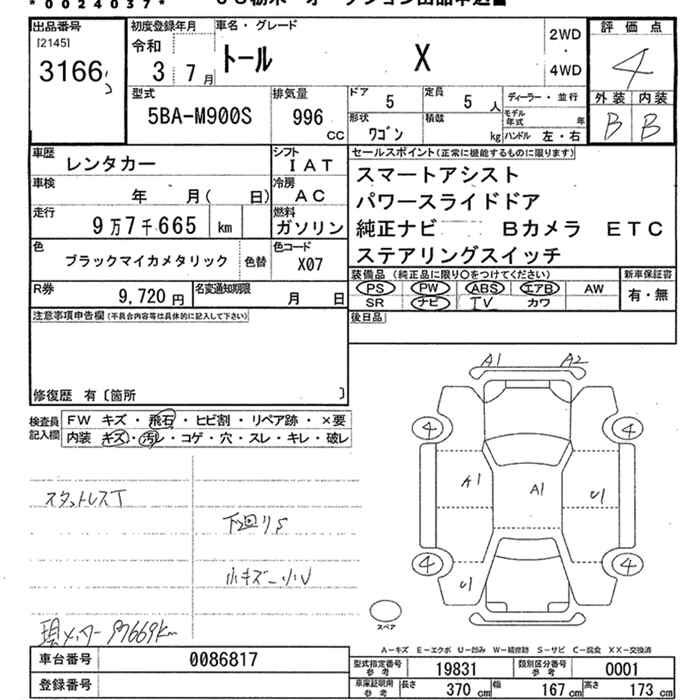 *0024037*
出品番号 初度登録年月 車名・グレード 2WD ・ 4WD 評価点
[2145] 3166 令和 3 7月 トール X 4
型式 5BA-M900S 排気量 996 CC ドア 5 定員 5 人 ディーラー・並行 外装 内装
形状 ワゴン 積載 kg モデル年式 年 ハンドル 左・右 B B
車歴 レンタカー シフト IAT セールスポイント(正常に機能するものに限ります)
車検 年 月( 日) 冷房 AC スマートアシスト
パワースライドドア
走行 9万7千665 km 燃料 ガソリン 純正ナビ Bカメラ ETC
色 ブラックマイカメタリック 色替 色コード X07 ステアリングスイッチ
装備品(純正品に限り○をつけてください) 新車保証書
R券 9,720円 名変通知期限 月 日 PS PW ABS エアB AW 有・無
SR ナビ TV カワ
注意事項申告欄(不具合内容等は具体的に記入して下さい) 後日品
修復歴 有〔箇所 〕
A1 A2
検査員記入欄 FW キズ・飛石・ヒビ割・リペア跡・×要
内装 キズ・汚レ・コゲ・穴・スレ・キレ・破レ
4 4
A1 A1 U1
スタットレスT
下回りS
4 4
小キズー小U U1
スペア
現メーター 97669km
A-キズ E-エクボ U-凹み W-補修跡 S-サビ C-腐食 XX-交換済
車台番号 0086817 型式指定番号 参考 19831 類別区分番号 参考 0001
登録番号 車庫証明用 参考 長さ 370 cm 幅 167 cm 高さ 173 cm